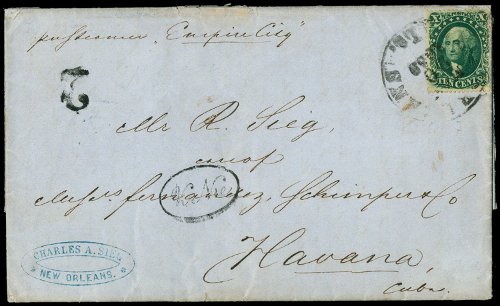 per steamer "Empire City"
TEN CENTS
2
Mr R. Sieg,
care of
Messrs Fernandez, Schimper & Co
NA. 1.
CHARLES A. SIEG
NEW ORLEANS.
Havana,
Cuba.